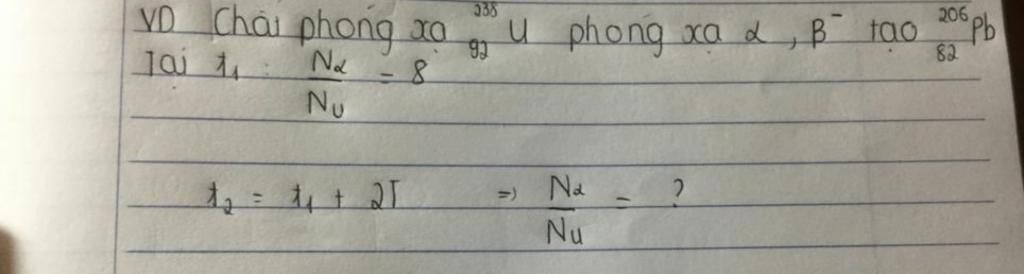 VD Chất phóng xạ ²³⁸₉₂U phóng xạ α, β⁻ tạo ²⁰⁶₈₂Pb
Tại t₁ : Nα/Nᵤ = 8
t₂ = t₁ + 2T => Nα/Nᵤ = ?